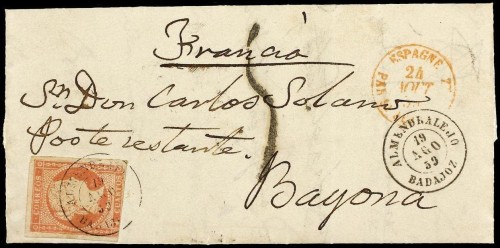 Francia
ESPAGNE
24
AOUT
Sr. Don Carlos Solano
Poste restante.
Bayona
ALMENDRALEJO
19
AGO
59
BADAJOZ
CORREOS